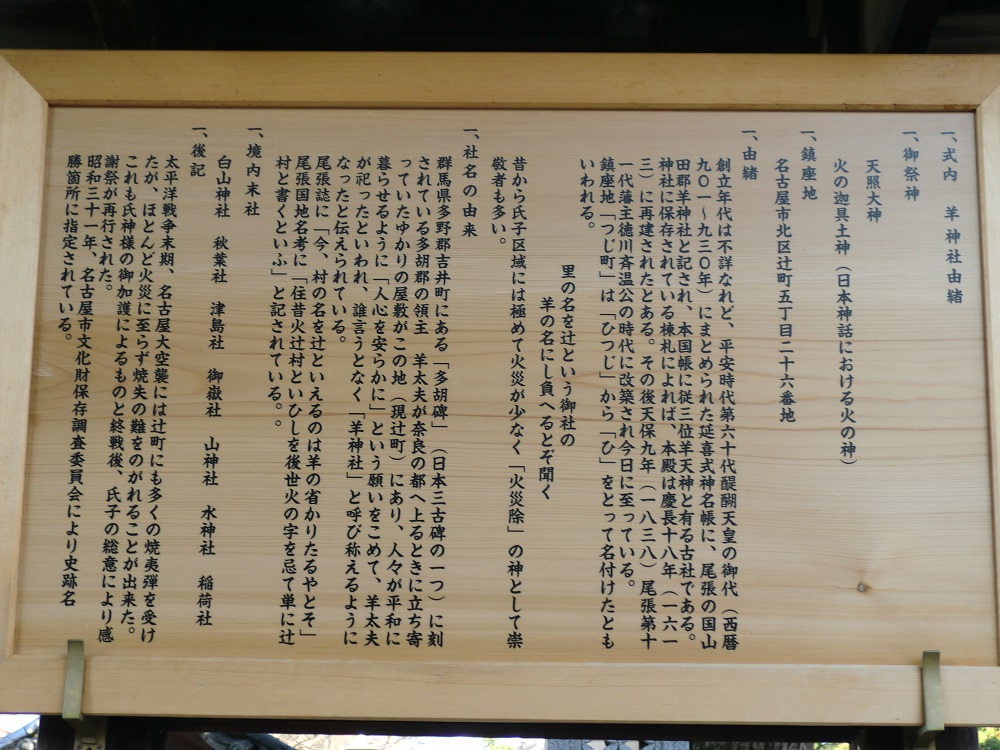 一、式内　羊神社由緒
一、御祭神
天照大神
火の迦具土神（日本神話における火の神）
一、鎮座地
名古屋市北区辻町五丁目二十六番地
一、由緒
創立年代は不詳なれど、平安時代第六十代醍醐天皇の御代（西暦
九〇一～九三〇年）にまとめられた延喜式神名帳に、尾張の国山
田郡羊神社と記され、本国帳に従三位羊天神と有る古社である。
神社に保存されている棟札によれば、本殿は慶長十八年（一六一
三）に再建されたとある。その後天保九年（一八三八）尾張第十
一代藩主徳川斉温公の時代に改築され今日に至っている。
鎮座地「つじ町」は「ひつじ」から「ひ」をとって名付けたとも
いわれる。
里の名を辻という御社の
羊の名にし負へるとぞ聞く
昔から氏子区域には極めて火災が少なく「火災除」の神として崇
敬者も多い。
一、社名の由来
群馬県多野郡吉井町にある「多胡碑」（日本三古碑の一つ）に刻
されている多胡郡の領主　羊太夫が奈良の都へ上るときに立ち寄
っていたゆかりの屋敷がこの地（現辻町）にあり、人々が平和に
暮らせるように「人心を安らかに」という願いをこめて、羊太夫
が祀ったといわれ、誰言うとなく「羊神社」と呼び称えるように
なったと伝えられている。
尾張誌に「今、村の名を辻といえるのは羊の省かりたるやとぞ」
尾張国地名考に「住昔火辻村といひしを後世火の字を忌て単に辻
村と書くといふ」と記されている。。
一、境内末社
白山神社　秋葉社　津島社　御嶽社　山神社　水神社　稲荷社
一、後記
太平洋戦争末期、名古屋大空襲には辻町にも多くの焼夷弾を受け
たが、ほとんど火災に至らず焼失の難をのがれることが出来た。
これも氏神様の御加護によるものと終戦後、氏子の総意により感
謝祭が再行された。
昭和三十一年、名古屋市文化財保存調査委員会により史跡名
勝箇所に指定されている。